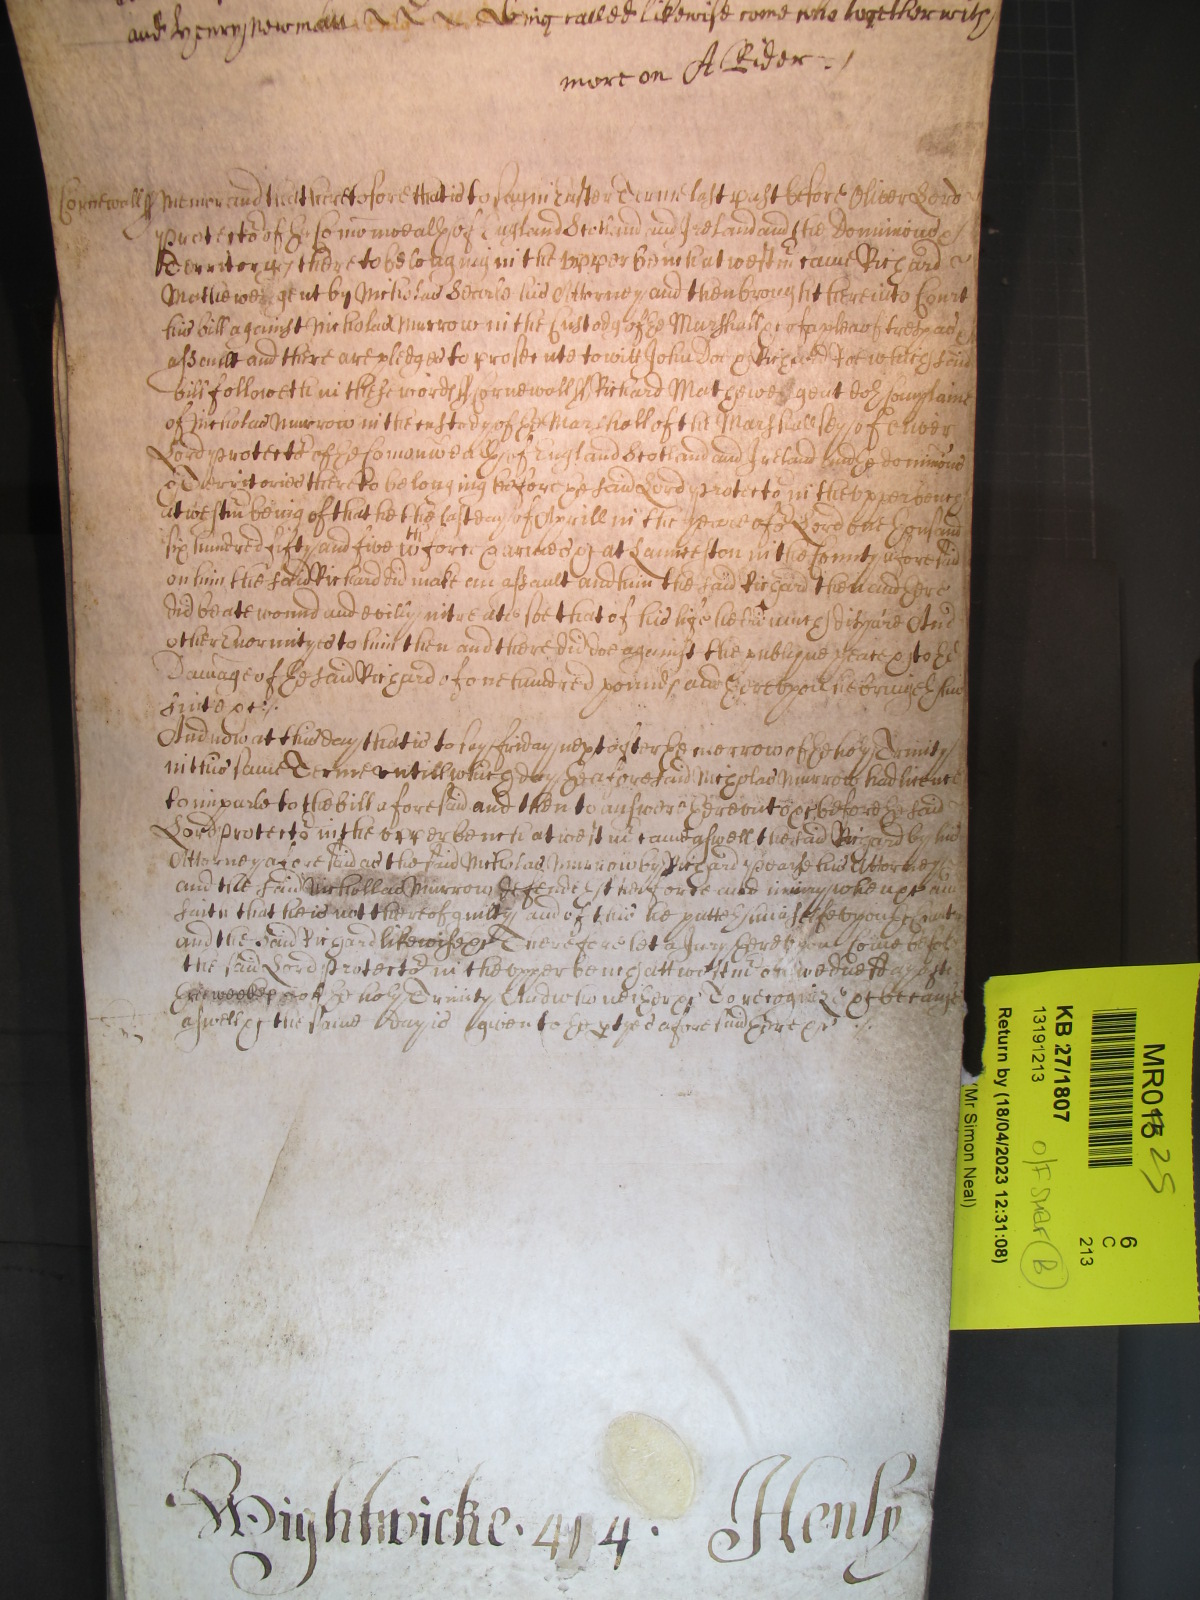 and Henry Newman being called likewise come who together with
more on A Rider
Cornewall ss Memorand that heretofore that is to say in Easter Terme last past before Oliver Lord
Protector of the Comonwealth of England Scotland and Ireland and the Dominions &
Territoryes thereto belonging in the upper bench at westmr came Richard
Mathewe gent by Nicholas Searle his Attorney and then brought here into Court
his bill against Nicholas Murrow in the Custody of the Marshall &c of a plea of trespas &
assault and there are pledges to prosecute to witt John Doe & Richard Roe which said
bill followeth in these words ss Cornewall ss Richard Mathewe gent doth complaine
of Nicholas Murrow in the custody of the Marshall of the Marshallsey of Oliver
Lord protector of the Comonwealth of England Scotland and Ireland and the dominions
& Territories thereto belonging before the said Lord Protector in the upper bench
at westmr being of that he the last day of Aprill in the yeare of or Lord one thousand
six hundred fifty and five wth force & armes &c at Launceston in the County aforesaid
on him the said Richard did make an assault and him the said Richard then and there
did beate wound and evilly intreate soe that of his life he did much dispaire And
other Enormityes to him then and there did doe against the publique peace & to the
Damage of the said Richard of one hundred pounds and thereupon he bringeth his
suite &c
And now at this day that is to say friday next after the morrow of the holy Trinity
in this same Terme untill which day the aforesaid Nicholas Murrow had licence
to imparle to the bill aforesaid and then to answere thereunto &c before the said
Lord Protector in the upper bench at westmr came aswell the said Richard by his
Attorney aforesaid as the said Nicholas Murrow by Richard Pearse his Attorney
and the said Nichollas Murrow defendeth the force and iniury when &c and
saith that he is not thereof guilty and of this he putteth himselfe upon the Country
and the said Richard likewise &c Therefore let a Jury thereupon come before
the said Lord Protector in the upper bench att westmr on wednesday next
three weekes of the holy Trinity And who neither &c To recognize &c because
aswell &c the same day is given to the ptyes aforesaid there &c
Wightwicke · 414 · Henly
MR01
25
KB 27/1807
13191213
Return by (18/04/2023 12:31:08)
(Mr Simon Neal)
6
C
213
B